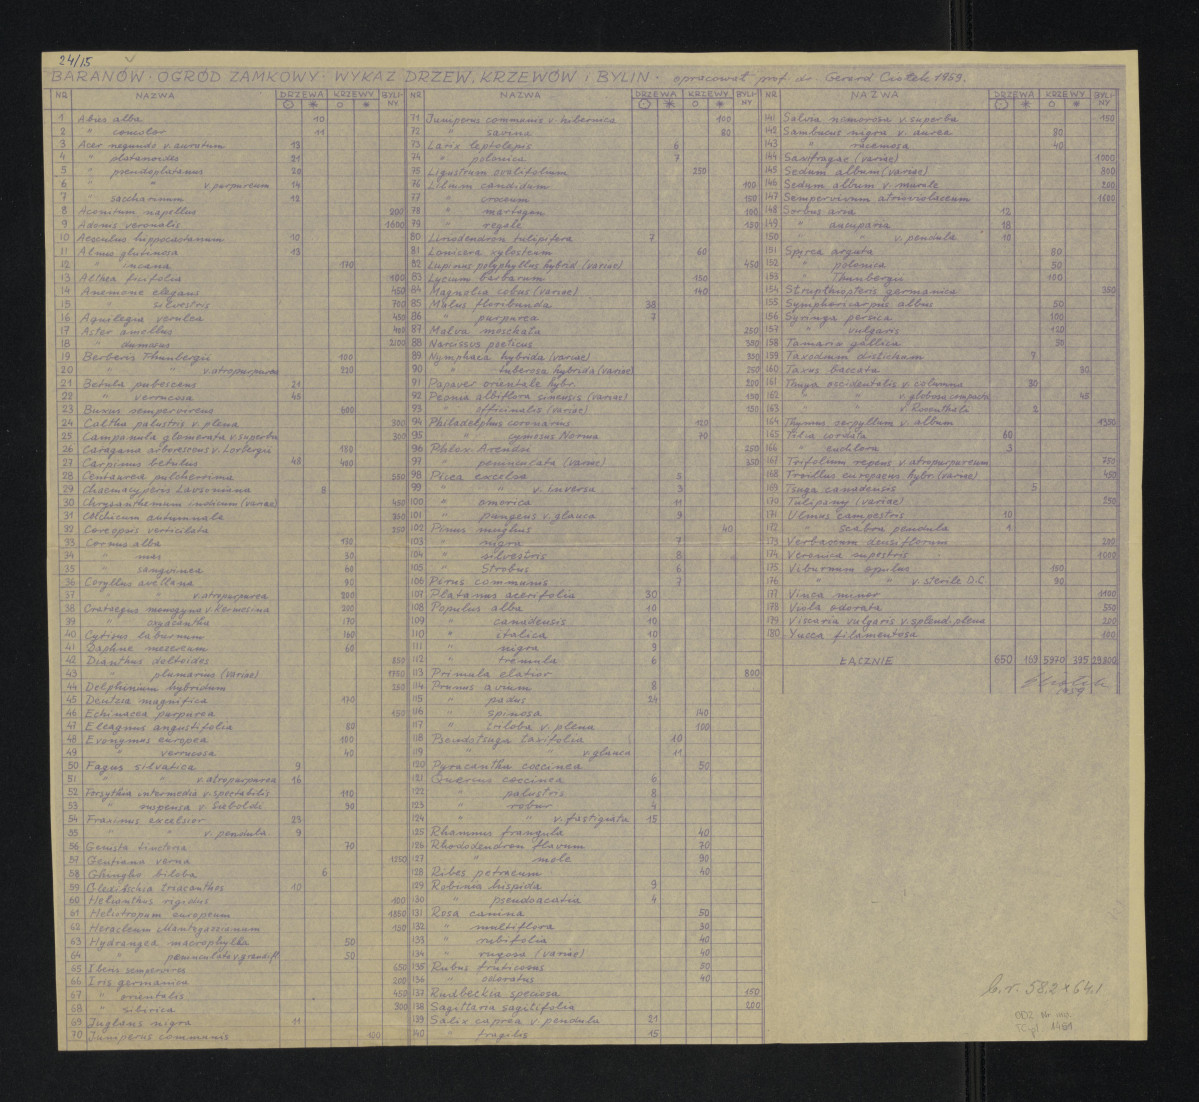 24/15
BARANÓW · OGRÓD ZAMKOWY · WYKAZ DRZEW, KRZEWÓW i BYLIN · opracował prof. dr. Gerard Ciołek 1959.
NR NAZWA DRZEWA KRZEWY BYLINY
1 Abies alba 10
2 " concolor 11
3 Acer negundo v. auratum 13
4 " platanoides 21
5 " pseudoplatanus 20
6 " " v. purpureum 14
7 " saccharinum 12
8 Aconitum napellus 200
9 Adonis veronalis 1600
10 Aesculus hippocastanum 10
11 Alnus glutinosa 13
12 " incana 170
13 Althea ficifolia 100
14 Anemone elegans 450
15 " silvestris 700
16 Aquilegia verulea 450
17 Aster amellus 400
18 " dumosus 2100
19 Berberis Thunbergii 100
20 " " v. atropurpurea 320
21 Betula pubescens 21
22 " verrucosa 45
23 Buxus sempervirens 600
24 Caltha palustris v. plena 300
25 Campanula glomerata v. superba 300
26 Caragana arborescens v. Lorbergii 150
27 Carpinus betulus 48 400
28 Centaurea pulcherrima 550
29 Chaemacyparis Lawsoniana 8
30 Chrysanthemum indicum (variae) 450
31 Colchicum autumnale 330
32 Coreopsis verticilata 250
33 Cornus alba 130
34 " mas 30
35 " sanguinea 60
36 Coryllus avellana 90
37 " " v. atropurpurea 200
38 Crataegus monogyna v. Kermesina 200
39 " oxyacantha 170
40 Cytisus laburnum 160
41 Daphne mesereum 60
42 Dianthus deltoides 850
43 " plumarius (variae) 1750
44 Delphinium hybridum 250
45 Deutzia magnifica 170
46 Echinacea purpurea 150
47 Eleagnus angustifolia 80
48 Evonymus europea 100
49 " verrucosa 40
50 Fagus silvatica 9
51 " " v. atropurpurea 16
52 Forsythia intermedia v. spectabilis 110
53 " suspensa v. Saboldi 90
54 Fraxinus excelsior 23
55 " " v. pendula 9
56 Genista tinctoria 70
57 Gentiana verna 1250
58 Ghingko biloba 6
59 Gleditschia triacanthos 10
60 Helianthus rigidus 100
61 Heliotropum europeum 1350
62 Heracleum Mantegazzianum 150
63 Hydrangea macrophylla 50
64 " peniculata v. grandifl 50
65 Iberis sempervires 650
66 Iris germanica 200
67 " orientalis 450
68 " sibirica 300
69 Juglans nigra 11
70 Juniperus communis 100
NR NAZWA DRZEWA KRZEWY BYLINY
71 Juniperus communis v. hibernica 100
72 " savina 80
73 Larix leptolepis 6
74 " polonica 7
75 Ligustrum ovalifolium 250
76 Lilium candidum 100
77 " croceum 100
78 " martagon 100
79 " regale 150
80 Liriodendron tulipifera 7
81 Lonicera xylosteum 60
82 Lupinus polyphyllus hybrid (variae) 450
83 Lycium barbarum 150
84 Magnolia cobus (variae) 140
85 Malus floribunda 38
86 " purpurea 7
87 Malva moschata 250
88 Narcissus poeticus 300
89 Nymphaea hybrida (variae) 300
90 " tuberosa hybrida (variae) 250
91 Papaver orientale hybr. 200
92 Peonia albiflora sinensis (variae) 150
93 " officinalis (variae) 150
94 Philadelphus coronarius 120
95 " cymosus Norma 70
96 Phlox Arendsi 250
97 " peniculata (variae) 350
98 Picea excelsa 5
99 " " v. inversa 3
100 " omorica 11
101 " pungens v. glauca 9
102 Pinus mughus 40
103 " nigra 7
104 " silvestris 8
105 " Strobus 6
106 Pirus communis 7
107 Platanus acerifolia 30
108 Populus alba 10
109 " canadensis 10
110 " italica 10
111 " nigra 9
112 " tremula 6
113 Primula elatior 800
114 Prunus avium 8
115 " padus 24
116 " spinosa 140
117 " triloba v. plena 100
118 Pseudotsuga taxifolia 10
119 " " v. glauca 11
120 Pyracantha coccinea 50
121 Quercus coccinea 6
122 " palustris 8
123 " robur 4
124 " " v. fastigiata 15
125 Rhamnus frangula 40
126 Rhododendron flavum 70
127 " mole 90
128 Ribes petraeum 40
129 Robinia hispida 9
130 " pseudoacatia 4
131 Rosa canina 50
132 " multiflora 30
133 " rubifolia 40
134 " rugosa (variae) 40
135 Rubus fruticosus 30
136 " odoratus 40
137 Rudbeckia speciosa 150
138 Sagittaria sagitifolia 200
139 Salix caprea v. pendula 21
140 " fragilis 15
NR NAZWA DRZEWA KRZEWY BYLINY
141 Salvia nemorosa v. superba 150
142 Sambucus nigra v. aurea 80
143 " racemosa 40
144 Saxifragae (variae) 1000
145 Sedum album (variae) 800
146 Sedum album v. murale 200
147 Sempervivum atroviolaceum 1600
148 Sorbus aria 12
149 " aucuparia 18
150 " " v. pendula 10
151 Spyrea arguta 80
152 " polonica 50
153 " Thunbergii 100
154 Strupthopteris germanica 350
155 Symphoricarpus albus 50
156 Syringa persica 100
157 " vulgaris 120
158 Tamaria gallica 90
159 Taxodium distichum 7
160 Taxus baccata 30
161 Thuya occidentalis v. columna 30
162 " " v. globosa compacta 45
163 " " v. Rosenthali 2
164 Thymus serpyllum v. album 1300
165 Tilia cordata 60
166 " euchlora 3
167 Trifolium repens v. atropurpureum 750
168 Trollius europaeus hybr. (variae) 450
169 Tsuga canadensis 5
170 Tulipany (variae) 250
171 Ulmus campestris 10
172 " scabra pendula 1
173 Verbascum densiflorum 200
174 Veronica rupestris 1000
175 Viburnum opulus 150
176 " " v. sterile D.C. 90
177 Vinca minor 1100
178 Viola odorata 550
179 Viscaria vulgaris v. splend. plena 200
180 Yucca filamentosa 100
ŁĄCZNIE 650 169 5970 395 29800
Ciołek
1959
b. r. 58.2 × 64.1
1461